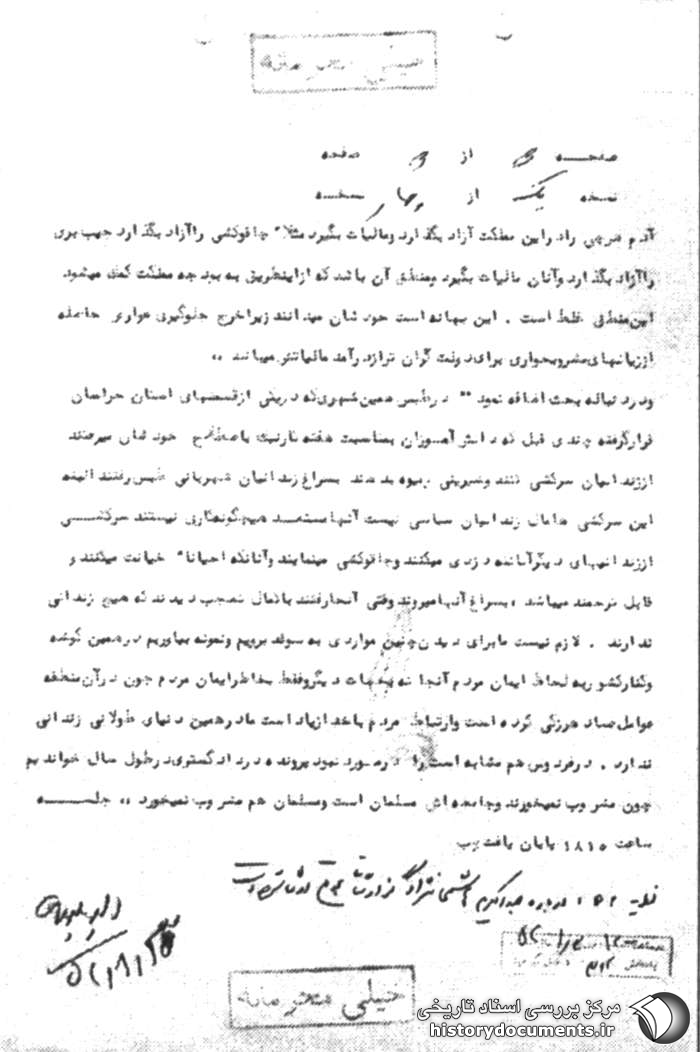 خیلی محرمانه
صفحه 3 از 3 صفحه
نسخه یک از چهار نسخه
آدم هرچی را در این مملکت آزاد بگذارد و مالیات بگیرد مثلا" چاقوکشی را آزاد بگذارد جیب بری
را آزاد بگذارد و آنان مالیات بگیرد و منطق آن باشد که از اینطریق به بودجه مملکت کمک میشود
این منطق غلط است . این بهانه است خودشان میدانند زیرا خرج جلوگیری حاصله
از زیانهای مشروبخواری برای دولت گران تر از درآمد مالیاتش میباشد ،،
و در دنباله بحث اضافه نمود "" در طبس همین شهری که در یکی از قسمتهای استان خراسان
قرار گرفته چندی قبل که دانش آموزان بمناسبت هفته نارنیک باصطلاح خودشان میرفتند
از زندانیان سرکشی کنند و شیرینی و میوه بدهند بسراغ زندانیان شهربانی طبس رفتند البته
این سرکشی شامال زندانیان سیاسی نیست آنها مستحق هیچگونه کاری نیستند سرکشی
از زندانیهای دیگر آنانکه دزدی میکنند و چاقوکشی مینمایند و آنانکه احیانا" خیانت میکنند و
قابل ترحمند میباشد ، بسراغ آنها میروند وقتی آنجا رفتند با کمال تعجب دیدند که هیچ زندانی
ندارند . لازم نیست ما برای دیدن چنین مواردی به سوئد برویم و نمونه بیاوریم در همین گوشه
و کنار کشور به لحاظ ایمان مردم آنجا نه بجهات دیگر و فقط بخاطر ایمان مردم چون در آن منطقه
عوامل فساد هرزگی کرده است و ارتباط مردم با خدا زیاد است ما در همین دنیای طولانی زندانی
ندارد . در فردوس هم مشابه است را در مورد نمود پرونده در دادگستری در طول سال خواندیم
چون مشروب نمیخورند و جامعه اش مسلمان است و مسلمان هم مشروب نمیخورد ،، جلسه
ساعت 1815 پایان یافت
درباره عبدالکریم هاشمی نژاد
خیلی محرمانه
مرکز بررسی اسناد تاریخی
historydocuments.ir